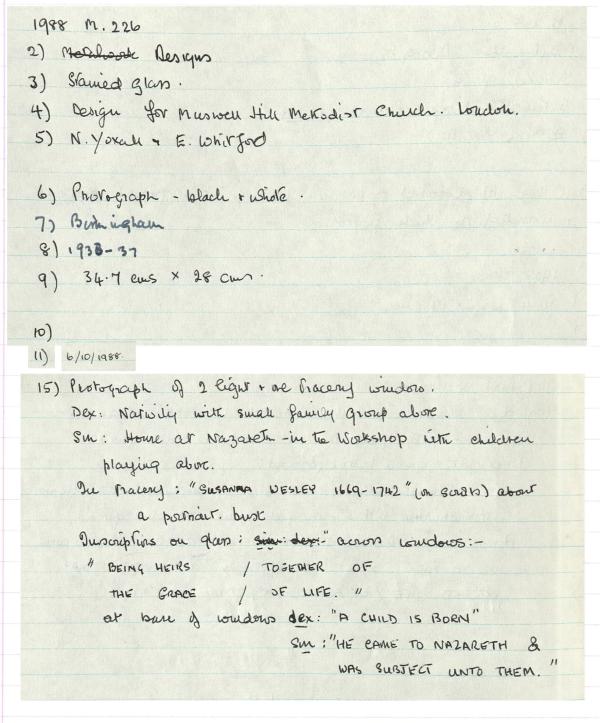 1988 M. 226
2) Designs
3) Stained Glass.
4) Design for Muswell Hill Methodist Church. London.
5) N. Yoxall & E. Whitford
6) Photograph - black & white.
7) Birmingham
8) 1933-37
9) 34.7 cms × 28 cms.
10)
11) 6/10/1988
15) Photograph of 2 light & one tracery window.
Dex: Nativity with small family group above.
Sin: Home at Nazareth - in the Workshop with children
playing above.
In Tracery: "SUSANNA WESLEY 1669-1742" (on scrolls) about
a portrait bust
Inscriptions on glass: sin: dex: " across windows:-
" BEING HEIRS / TOGETHER OF
THE GRACE / OF LIFE. "
at base of windows dex: "A CHILD IS BORN"
Sin: "HE CAME TO NAZARETH &
WAS SUBJECT UNTO THEM."